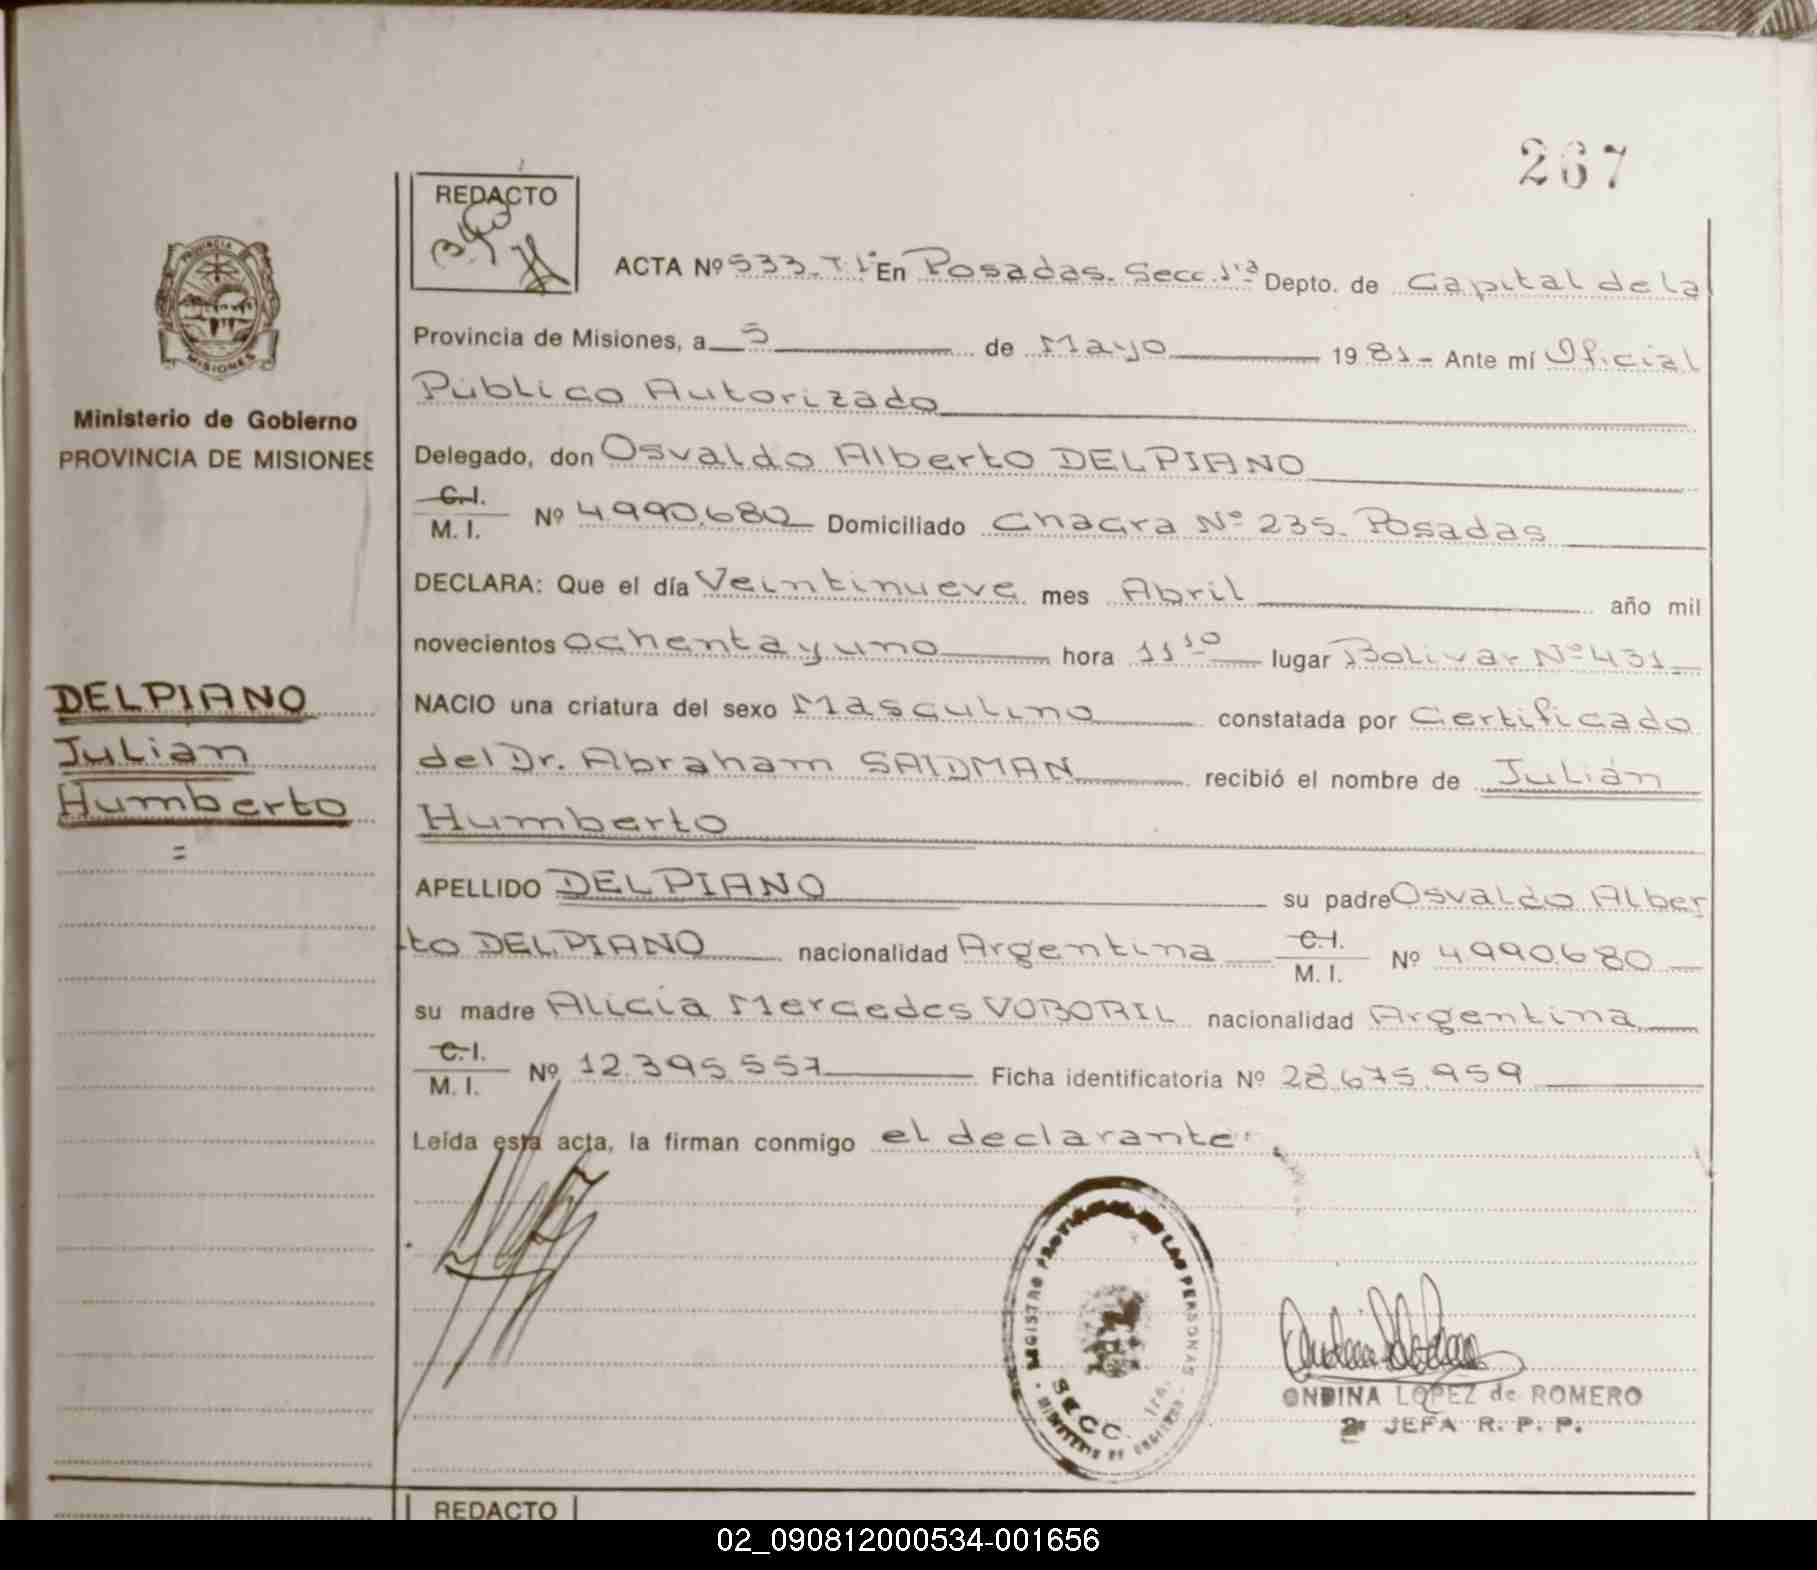 267
REDACTO
PROVINCIA
MISIONES
ACTA Nº 533. T 1º En Posadas. Secc. 1ra Depto. de Capital de la
Provincia de Misiones, a 5 de Mayo 19 81 - Ante mí Oficial
Público Autorizado
Ministerio de Gobierno
PROVINCIA DE MISIONES
Delegado, don Osvaldo Alberto DELPIANO
C.I.
M. I. Nº 4.990.680 Domiciliado Chacra Nº 235. Posadas
DECLARA: Que el día Veintinueve mes Abril año mil
novecientos ochenta y uno hora 11 10 lugar Bolivar Nº 431
DELPIANO
Julian
Humberto
=
NACIO una criatura del sexo Masculino constatada por Certificado
del Dr. Abraham SAIDMAN recibió el nombre de Julián
Humberto
APELLIDO DELPIANO su padre Osvaldo Alber
to DELPIANO nacionalidad Argentina C.I. M. I. Nº 4.990.680
su madre Alicia Mercedes VOBORIL nacionalidad Argentina
C.I.
M. I. Nº 12.395.557 Ficha identificatoria Nº 28.675.959
Leída esta acta, la firman conmigo el declarante.
REGISTRO PROVINCIAL DE LAS PERSONAS
SECC. 1ra.
ONDINA LOPEZ de ROMERO
2ª JEFA R. P. P.
REDACTO
02_090812000534-001656